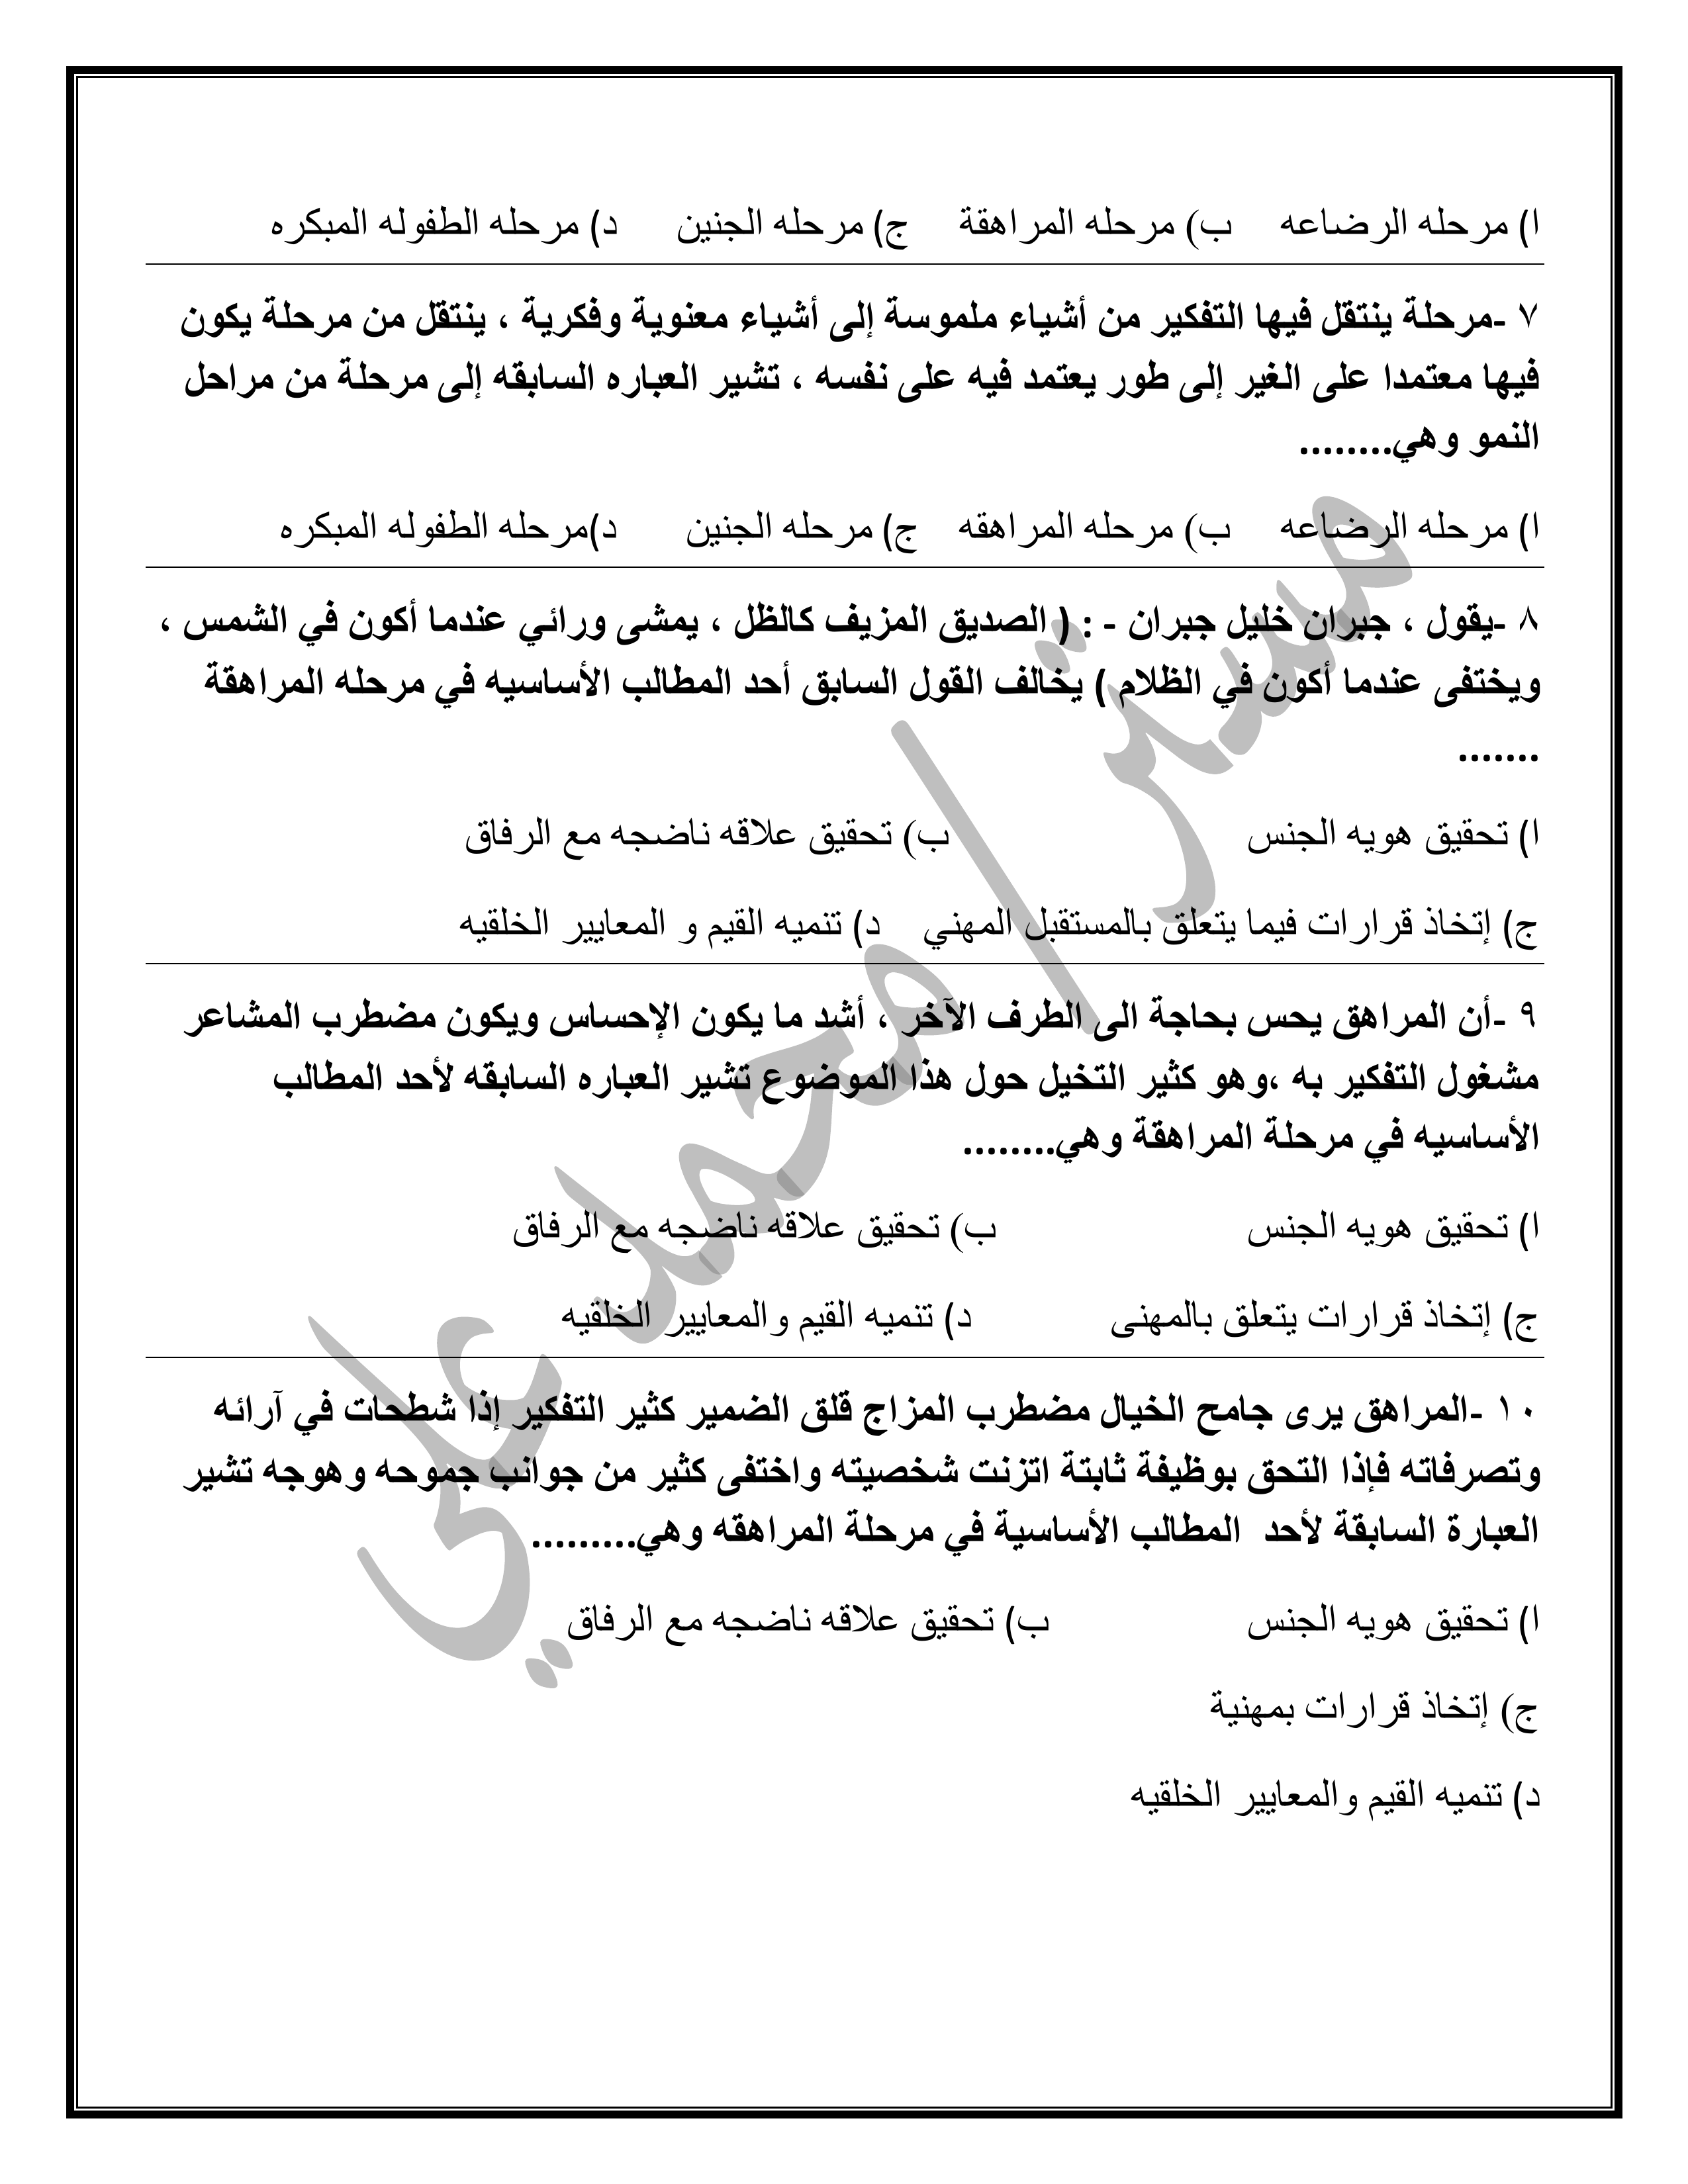 ا) مرحله الرضاعه ب) مرحله المراهقة ج) مرحله الجنين د) مرحله الطفوله المبكره
٧ -مرحلة ينتقل فيها التفكير من أشياء ملموسة إلى أشياء معنوية وفكرية ، ينتقل من مرحلة يكون
فيها معتمدا على الغير إلى طور يعتمد فيه على نفسه ، تشير العباره السابقه إلى مرحلة من مراحل
النمو وهي........
ا) مرحله الرضاعه ب) مرحله المراهقه ج) مرحله الجنين د)مرحله الطفوله المبكره
٨ -يقول ، جبران خليل جبران - : ( الصديق المزيف كالظل ، يمشى ورائي عندما أكون في الشمس ،
ويختفى عندما أكون في الظلام ) يخالف القول السابق أحد المطالب الأساسيه في مرحله المراهقة
.......
ا) تحقيق هويه الجنس ب) تحقيق علاقه ناضجه مع الرفاق
ج) إتخاذ قرارات فيما يتعلق بالمستقبل المهني د) تنميه القيم و المعايير الخلقيه
٩ -أن المراهق يحس بحاجة الى الطرف الآخر ، أشد ما يكون الإحساس ويكون مضطرب المشاعر
مشغول التفكير به ،وهو كثير التخيل حول هذا الموضوع تشير العباره السابقه لأحد المطالب
الأساسيه في مرحلة المراهقة وهي........
ا) تحقيق هويه الجنس ب) تحقيق علاقه ناضجه مع الرفاق
ج) إتخاذ قرارات يتعلق بالمهنى د) تنميه القيم والمعايير الخلقيه
١٠ -المراهق يرى جامح الخيال مضطرب المزاج قلق الضمير كثير التفكير إذا شطحات في آرائه
وتصرفاته فإذا التحق بوظيفة ثابتة اتزنت شخصيته واختفى كثير من جوانب جموحه وهوجه تشير
العبارة السابقة لأحد المطالب الأساسية في مرحلة المراهقه وهي.........
ا) تحقيق هويه الجنس ب) تحقيق علاقه ناضجه مع الرفاق
ج) إتخاذ قرارات بمهنية
د) تنميه القيم والمعايير الخلقيه
مستر/محمد علي